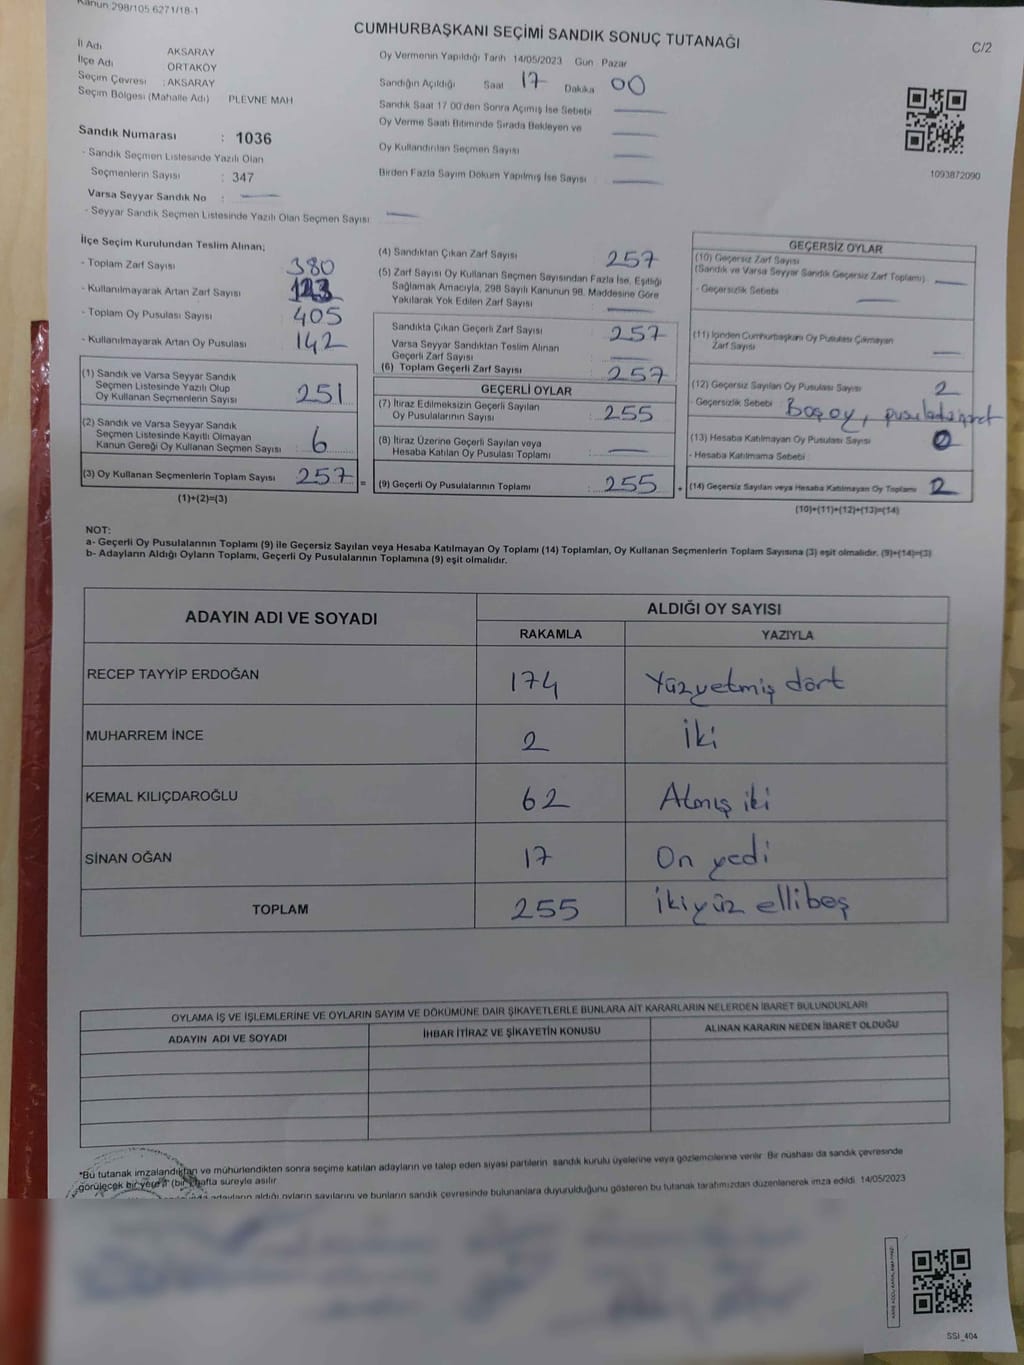 Kanun 298/105 6271/18-1
CUMHURBAŞKANI SEÇİMİ SANDIK SONUÇ TUTANAĞI
C/2
İl Adı AKSARAY
İlçe Adı ORTAKÖY
Seçim Çevresi : AKSARAY
Seçim Bölgesi (Mahalle Adı) PLEVNE MAH
Oy Vermenin Yapıldığı Tarih 14/05/2023 Gün Pazar
Sandığın Açıldığı Saat 17 Dakika 00
Sandık Saat 17 00'den Sonra Açımış İse Sebebi
Oy Verme Saati Bitiminde Sırada Bekleyen ve
Oy Kullandırılan Seçmen Sayısı
Birden Fazla Sayım Döküm Yapılmış İse Sayısı
1093872090
Sandık Numarası : 1036
- Sandık Seçmen Listesinde Yazılı Olan
Seçmenlerin Sayısı : 347
Varsa Seyyar Sandık No :
- Seyyar Sandık Seçmen Listesinde Yazılı Olan Seçmen Sayısı
İlçe Seçim Kurulundan Teslim Alınan;
- Toplam Zarf Sayısı 380
- Kullanılmayarak Artan Zarf Sayısı 123
- Toplam Oy Pusulası Sayısı 405
- Kullanılmayarak Artan Oy Pusulası 142
(1) Sandık ve Varsa Seyyar Sandık
Seçmen Listesinde Yazılı Olup
Oy Kullanan Seçmenlerin Sayısı 251
(2) Sandık ve Varsa Seyyar Sandık
Seçmen Listesinde Kayıtlı Olmayan
Kanun Gereği Oy Kullanan Seçmen Sayısı 6
(3) Oy Kullanan Seçmenlerin Toplam Sayısı 257 =
(1)+(2)=(3)
(4) Sandıktan Çıkan Zarf Sayısı 257
(5) Zarf Sayısı Oy Kullanan Seçmen Sayısından Fazla İse, Eşitliği
Sağlamak Amacıyla, 298 Sayılı Kanunun 98. Maddesine Göre
Yakılarak Yok Edilen Zarf Sayısı
Sandıkta Çıkan Geçerli Zarf Sayısı 257
Varsa Seyyar Sandıktan Teslim Alınan
Geçerli Zarf Sayısı
(6) Toplam Geçerli Zarf Sayısı 257
GEÇERLİ OYLAR
(7) İtiraz Edilmeksizin Geçerli Sayılan
Oy Pusulalarının Sayısı 255
(8) İtiraz Üzerine Geçerli Sayılan veya
Hesaba Katılan Oy Pusulası Toplamı
(9) Geçerli Oy Pusulalarının Toplamı 255 +
GEÇERSİZ OYLAR
(10) Geçersiz Zarf Sayısı
(Sandık ve Varsa Seyyar Sandık Geçersiz Zarf Toplamı)
- Geçersizlik Sebebi
(11) İçinden Cumhurbaşkanı Oy Pusulası Çıkmayan
Zarf Sayısı
(12) Geçersiz Sayılan Oy Pusulası Sayısı 2
- Geçersizlik Sebebi Boş oy, pusulada işaret
(13) Hesaba Katılmayan Oy Pusulası Sayısı 0
- Hesaba Katılmama Sebebi
(14) Geçersiz Sayılan veya Hesaba Katılmayan Oy Toplamı 2
(10)+(11)+(12)+(13)=(14)
NOT:
a- Geçerli Oy Pusulalarının Toplamı (9) ile Geçersiz Sayılan veya Hesaba Katılmayan Oy Toplamı (14) Toplamları, Oy Kullanan Seçmenlerin Toplam Sayısına (3) eşit olmalıdır. (9)+(14)=(3)
b- Adayların Aldığı Oyların Toplamı, Geçerli Oy Pusulalarının Toplamına (9) eşit olmalıdır.
ADAYIN ADI VE SOYADI
ALDIĞI OY SAYISI
RAKAMLA YAZIYLA
RECEP TAYYİP ERDOĞAN 174 Yüzyetmiş dört
MUHARREM İNCE 2 İki
KEMAL KILIÇDAROĞLU 62 Atmış iki
SİNAN OĞAN 17 On yedi
TOPLAM 255 ikiyüz ellibeş
OYLAMA İŞ VE İŞLEMLERİNE VE OYLARIN SAYIM VE DÖKÜMÜNE DAİR ŞİKAYETLERLE BUNLARA AİT KARARLARIN NELERDEN İBARET BULUNDUKLARI
ADAYIN ADI VE SOYADI İHBAR İTİRAZ VE ŞİKAYETİN KONUSU ALINAN KARARIN NEDEN İBARET OLDUĞU
*Bu tutanak imzalandıktan ve mühürlendikten sonra seçime katılan adayların ve talep eden siyasi partilerin sandık kurulu üyelerine veya gözlemcilerine verilir. Bir nüshası da sandık çevresinde
görülecek bir yere 1 (bir) hafta süreyle asılır
adayların aldığı oyların sayılarını ve bunların sandık çevresinde bulunanlara duyurulduğunu gösteren bu tutanak tarafımızdan düzenlenerek imza edildi. 14/05/2023
SSI_404